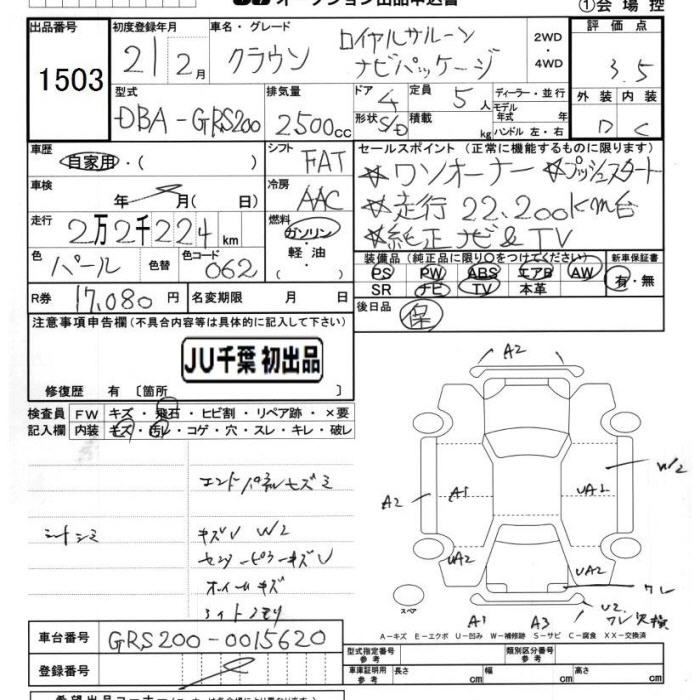 オークション出品申込書
①会場控
出品番号 1503
初度登録年月 21 2月
車名・グレード クラウン ロイヤルサルーン ナビパッケージ
2WD・4WD
評価点 3.5
外装 D 内装 C
型式 DBA-GRS200
排気量 2500cc
ドア 4 形状 S/D
定員 5人 積載 kg
ディーラー・並行
モデル年式 年
ハンドル 左・右
車歴 自家用・( )
シフト FAT
セールスポイント (正常に機能するものに限ります)
☆ワンオーナー ☆プッシュスタート
☆走行 22,200km台
☆純正ナビ&TV
車検 年 月(日)
冷房 AAC
走行 2万2千224km
燃料 ガソリン・軽油・( )
色 パール 色替 色コード 062
装備品 (純正品に限り○をつけてください) 新車保証書
PS PW ABS エアB AW 有・無
SR ナビ TV 本革
R券 17,080円 名変期限 月 日
後日品 保
注意事項申告欄 (不具合内容等は具体的に記入して下さい)
JU千葉 初出品
修復歴 有 〔箇所 〕
検査員記入欄
FW キズ・飛石・ヒビ割・リペア跡・×要
内装 キズ・汚レ・コゲ・穴・スレ・キレ・破レ
エンドパネルキズミ
シートシミ
キズU W2
センターピラーキズU
ホイールキズ
ライトクモリ
A2
A2 A1 UA2 W2
UA2 UA2
クレ
スペア
A1 A3 U2
クレ 交換
A-キズ E-エクボ U-凹み W-補修跡 S-サビ C-腐食 XX-交換済
車台番号 GRS200-0015620
登録番号
型式指定番号 参考 類別区分番号 参考
車庫証明用 参考 長さ cm 幅 cm 高さ cm
希望出品コーナー